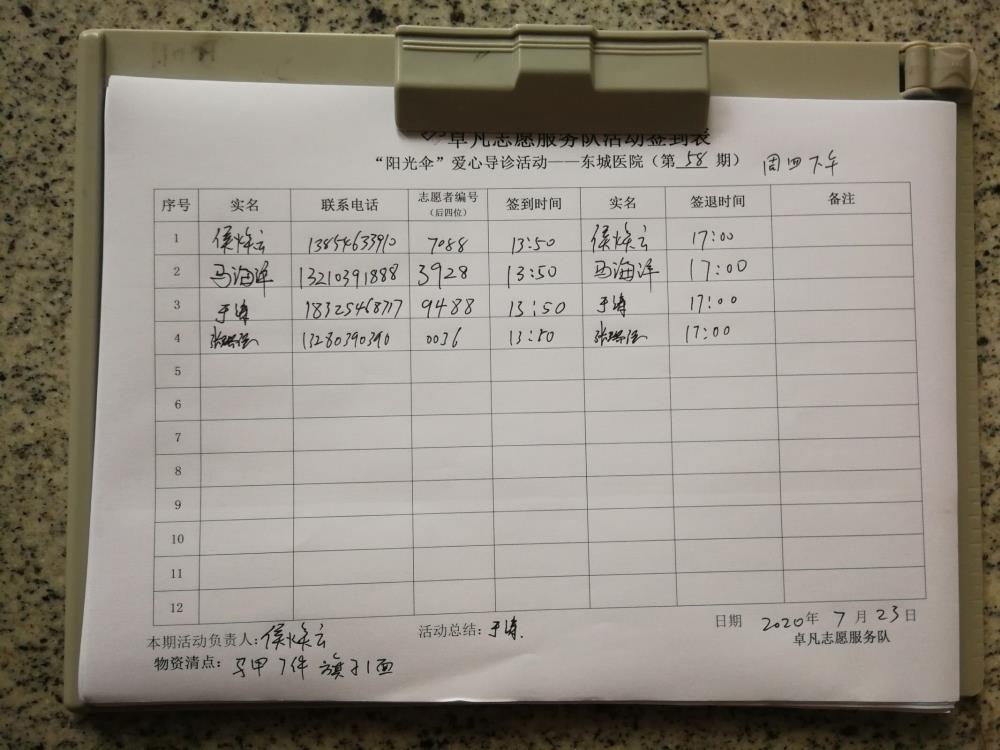 卓凡志愿服务队活动签到表
“阳光伞”爱心导诊活动——东城医院（第 58 期） 周四下午
序号 实名 联系电话 志愿者编号（后四位） 签到时间 实名 签退时间 备注
1 侯焕云 13854633910 7088 13:50 侯焕云 17:00
2 马海洋 13210391888 3928 13:50 马海洋 17:00
3 于涛 18325468717 9488 13:50 于涛 17:00
4 13280390390 0036 13:50 17:00
5
6
7
8
9
10
11
12
本期活动负责人：侯焕云 活动总结：于涛. 日期 2020年 7月 23日
物资清点：马甲7件 旗子1面 卓凡志愿服务队